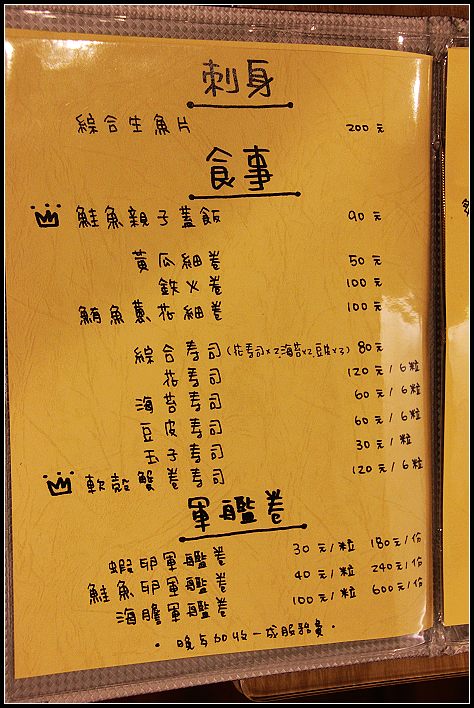 刺身
綜合生魚片 200元
食事
鮭魚親子蓋飯 90元
黃瓜細卷 50元
鉄火卷 100元
鮪魚蔥花細卷 100元
綜合壽司(花壽司x2海苔x2豆佚x3) 80元
花壽司 120元/6粒
海苔壽司 60元/6粒
豆皮壽司 60元/6粒
玉子壽司 30元/粒
軟殼蟹卷壽司 120元/6粒
軍艦卷
蝦卵軍艦卷 30元/粒 180元/份
鮭魚卵軍艦卷 40元/粒 240元/份
海膽軍艦卷 100元/粒 600元/份
·晚上加收一成服務費·